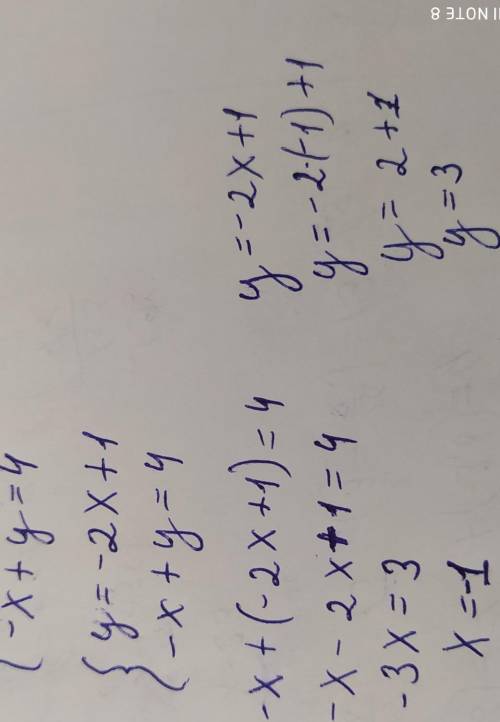 { -x + y = 4
{ y = -2x + 1
{ -x + y = 4
-x + (-2x + 1) = 4
-x - 2x + 1 = 4
-3x = 3
x = -1
y = -2x + 1
y = -2·(-1) + 1
y = 2 + 1
y = 3
NOTE 8